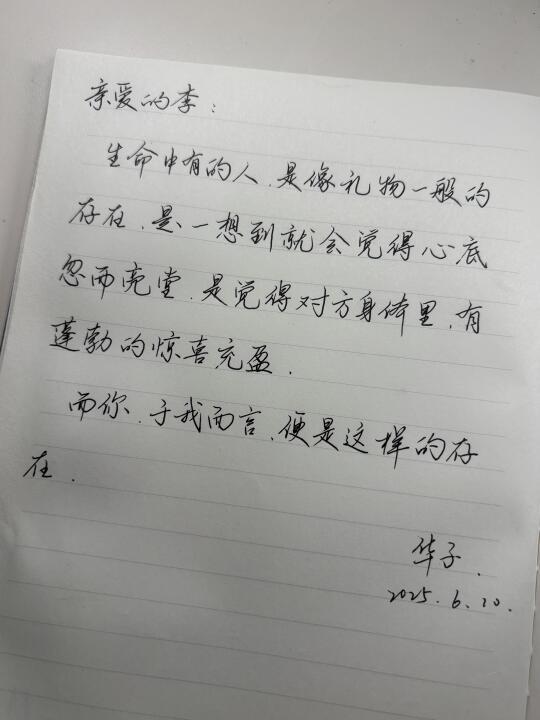 亲爱的李:
生命中有的人.是像礼物一般的
存在.是一想到就会觉得心底
忽而亮堂.是觉得对方身体里.有
蓬勃的惊喜充盈.
而你.于我而言.便是这样的存
在.
华子.
2025.6.20.